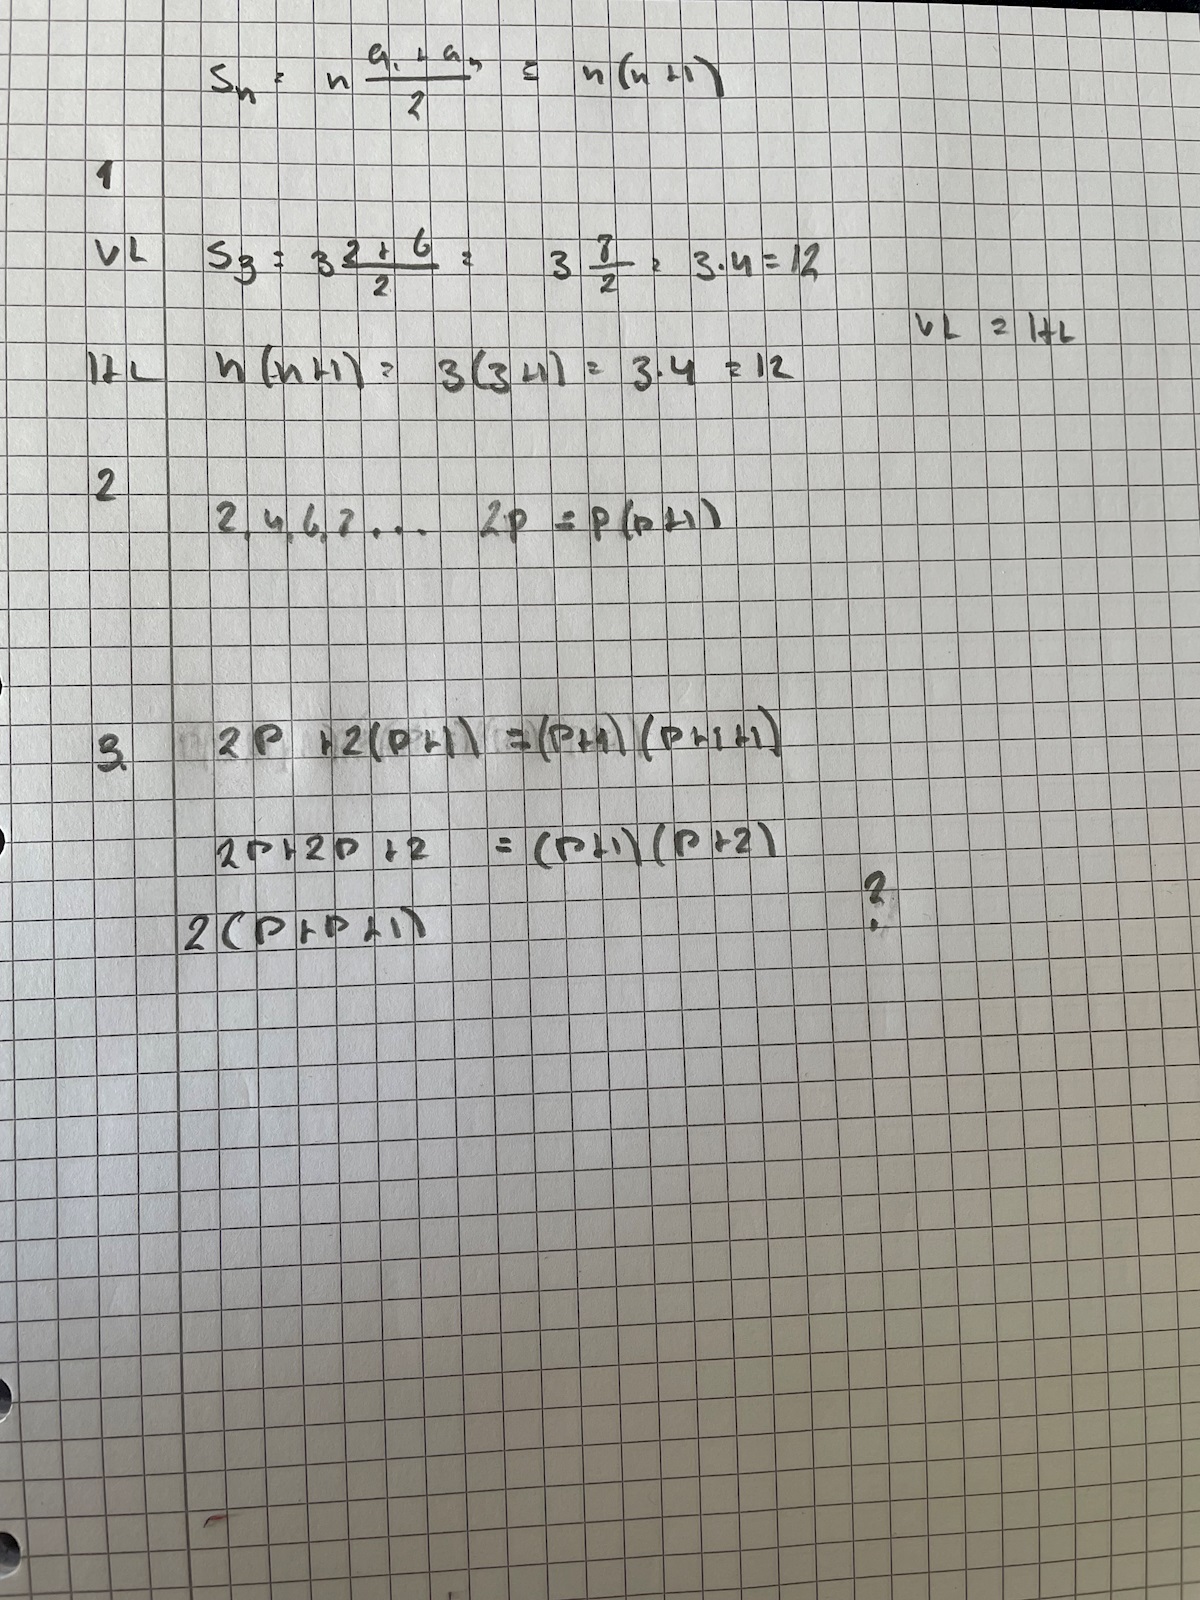 Sn = n (a1 + an)/2 = n(n+1)
1
VL S3 = 3 (2+6)/2 = 3 8/2 = 3·4 = 12
VL = HL
HL n(n+1) = 3(3+1) = 3·4 = 12
2
2, 4, 6, 8 ... 2p = p(p+1)
3. 2p + 2(p+1) = (p+1)(p+1+1)
2p+2p+2 = (p+1)(p+2)
?
2(p+p+1)